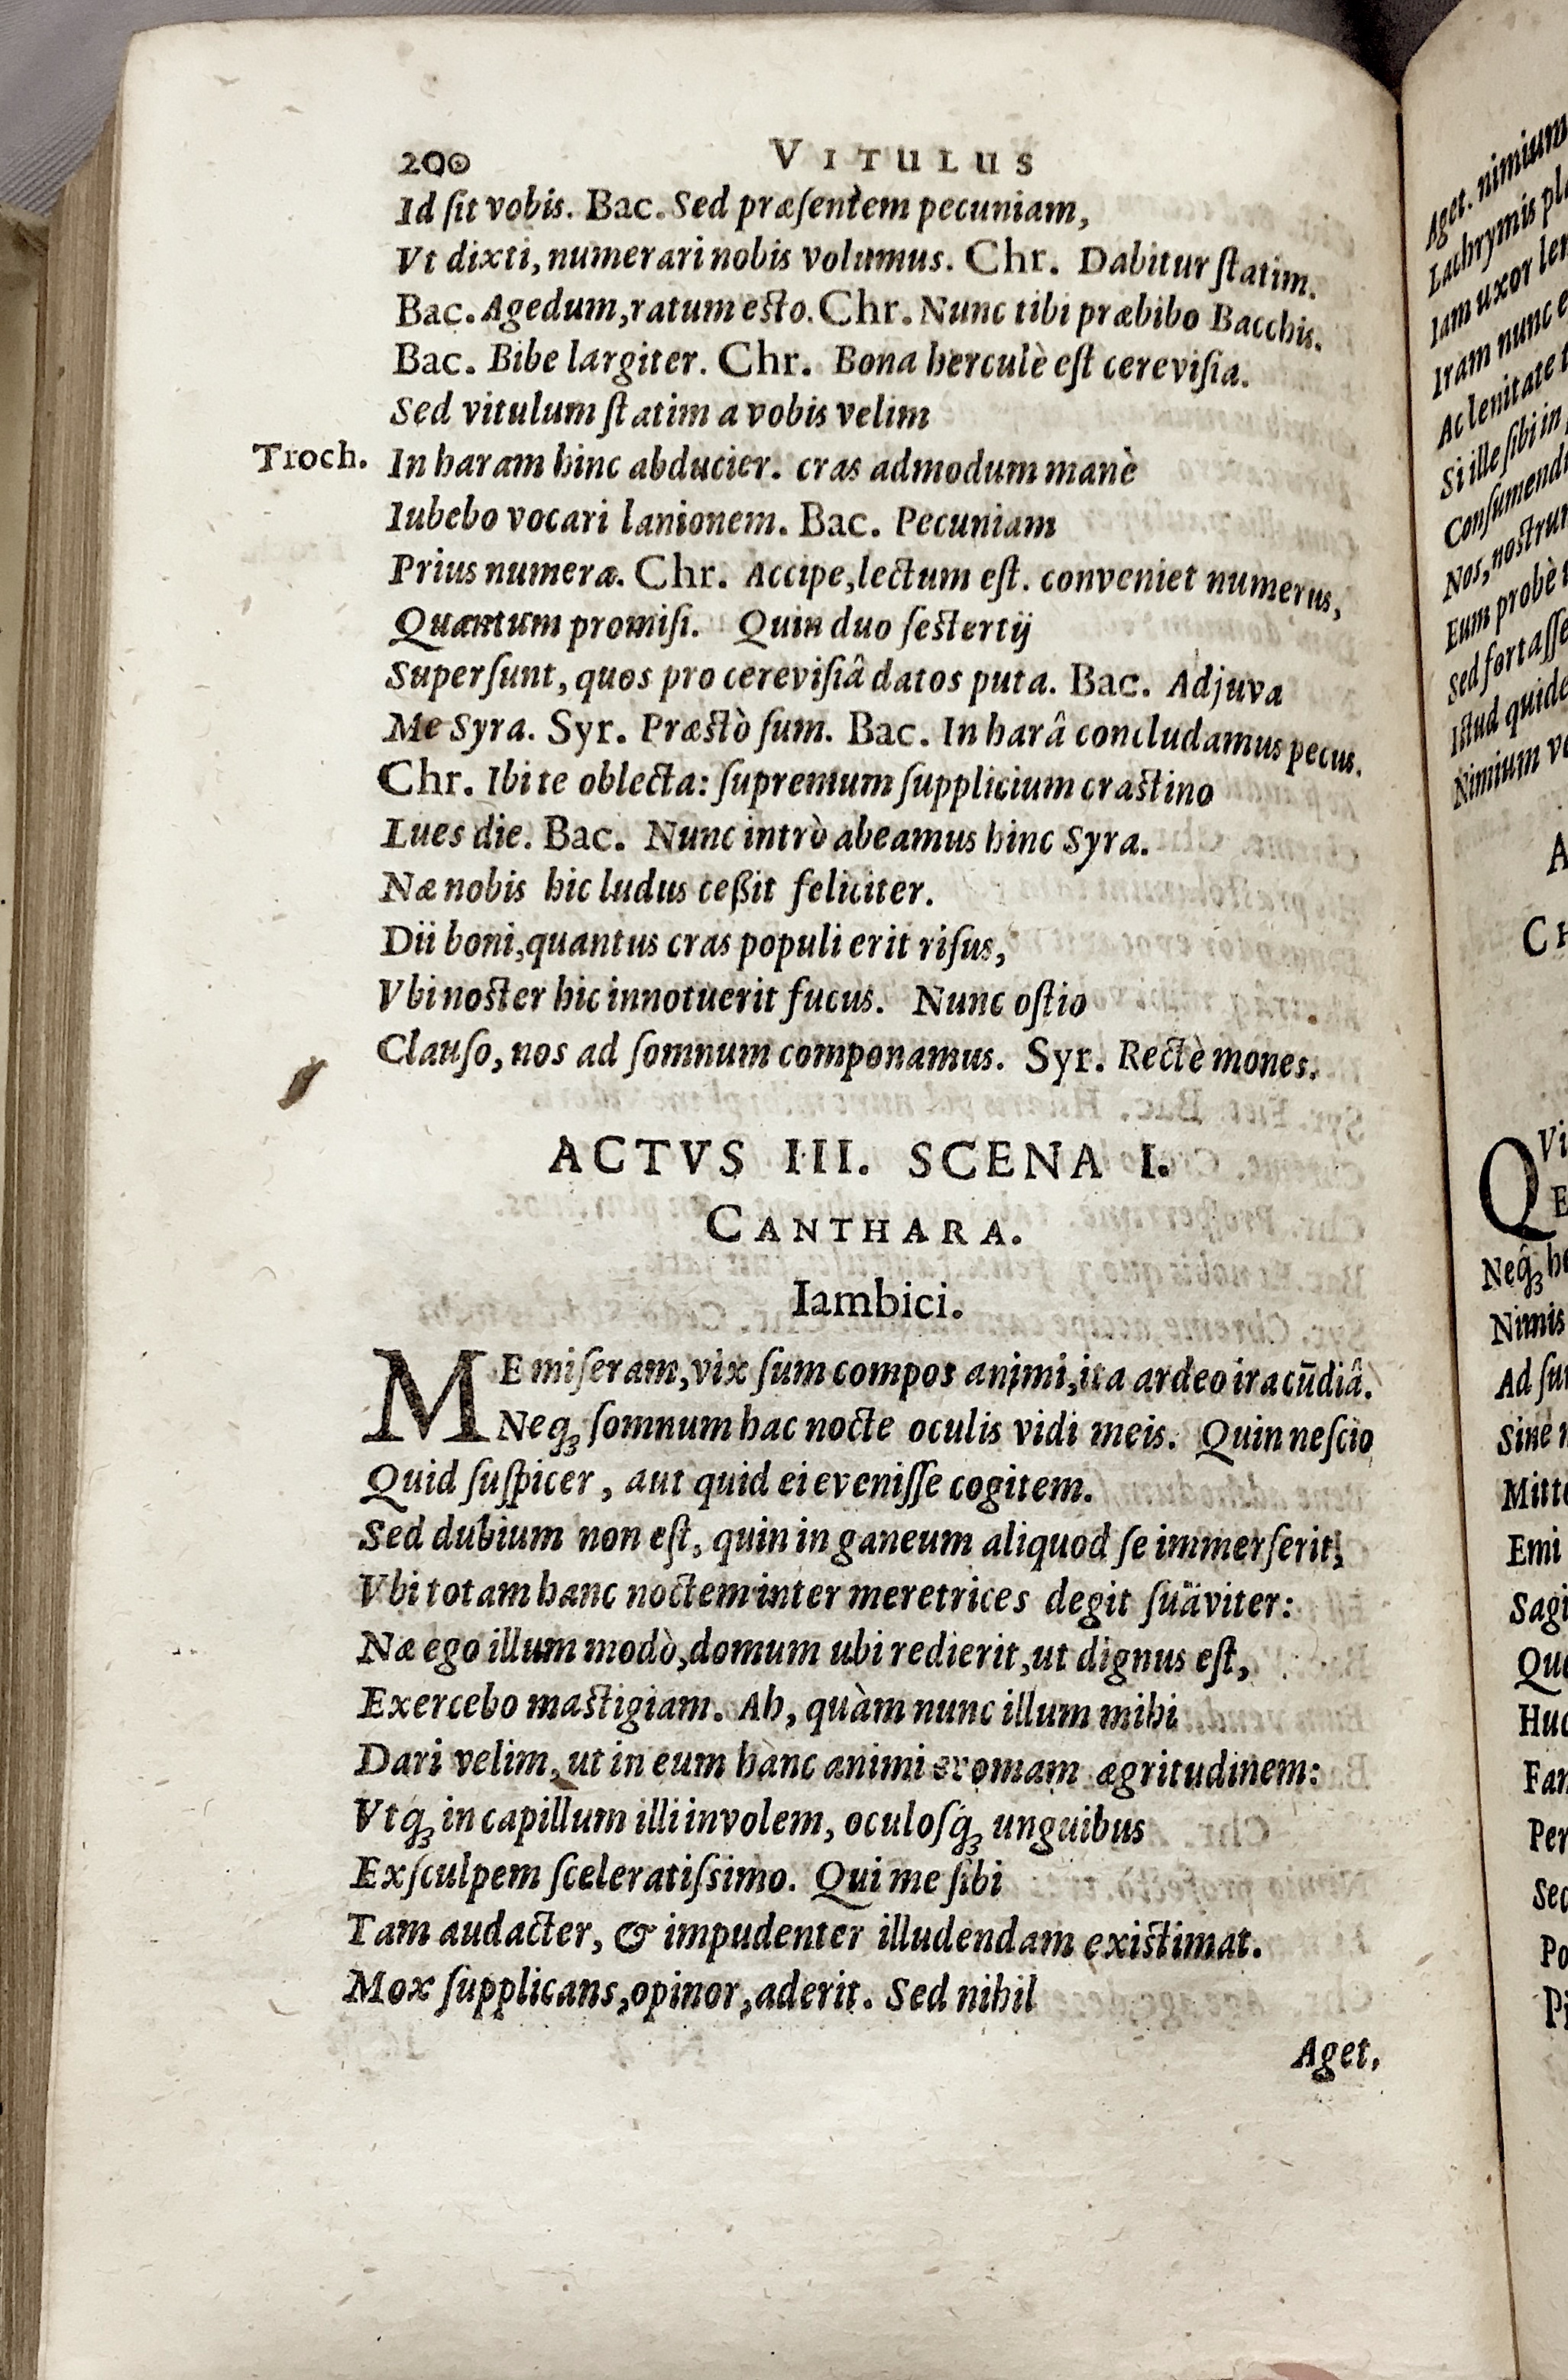 200 VITULUS
Id ſit vobis. Bac. Sed præſentem pecuniam,
Vt dixti, numerari nobis volumus. Chr. Dabitur ſtatim.
Bac. Agedum, ratum eſto. Chr. Nunc tibi præbibo Bacchis.
Bac. Bibe largiter. Chr. Bona herculè eſt cereviſia.
Sed vitulum ſtatim a vobis velim
Troch. In haram hinc abducier. cras admodum manè
Iubebo vocari lanionem. Bac. Pecuniam
Prius numera. Chr. Accipe, lectum eſt. conveniet numerus,
Quantum promiſi. Quin duo ſeſtertij
Superſunt, quos pro cereviſiâ datos puta. Bac. Adjuva
Me Syra. Syr. Præſtò ſum. Bac. In harâ concludamus pecus.
Chr. Ibi te oblecta: ſupremum ſupplicium craſtino
Lues die. Bac. Nunc intrò abeamus hinc Syra.
Næ nobis hic ludus ceßit feliciter.
Dii boni, quantus cras populi erit riſus,
Vbi noſter hic innotuerit fucus. Nunc oſtio
Clauſo, nos ad ſomnum componamus. Syr. Rectè mones.
ACTVS III. SCENA I.
CANTHARA.
Iambici.
ME miſeram, vix ſum compos animi, ita ardeo iracūdiâ.
Neqꝫ ſomnum hac nocte oculis vidi meis. Quin neſcio
Quid ſuſpicer, aut quid ei eveniſſe cogitem.
Sed dubium non eſt, quin in ganeum aliquod ſe immerſerit,
Vbi totam hanc noctem inter meretrices degit ſuäviter:
Næ ego illum modò, domum ubi redierit, ut dignus eſt,
Exercebo maſtigiam. Ah, quàm nunc illum mihi
Dari velim, ut in eum hànc animi evomam ægritudinem:
Vtq́ꝫ in capillum illi involem, oculoſq́ꝫ unguibus
Exſculpem ſceleratiſsimo. Qui me ſibi
Tam audacter, & impudenter illudendam exiſtimat.
Mox ſupplicans, opinor, aderit. Sed nihil
Aget.
Aget. nimium
Lachrymis
Iam uxor
Iram nunc
Ac lenitate
Si ille ſibi in
Nos,
Eum probè
Sed fortaſſe
Iſtud
Nimium
Nimis
Emi